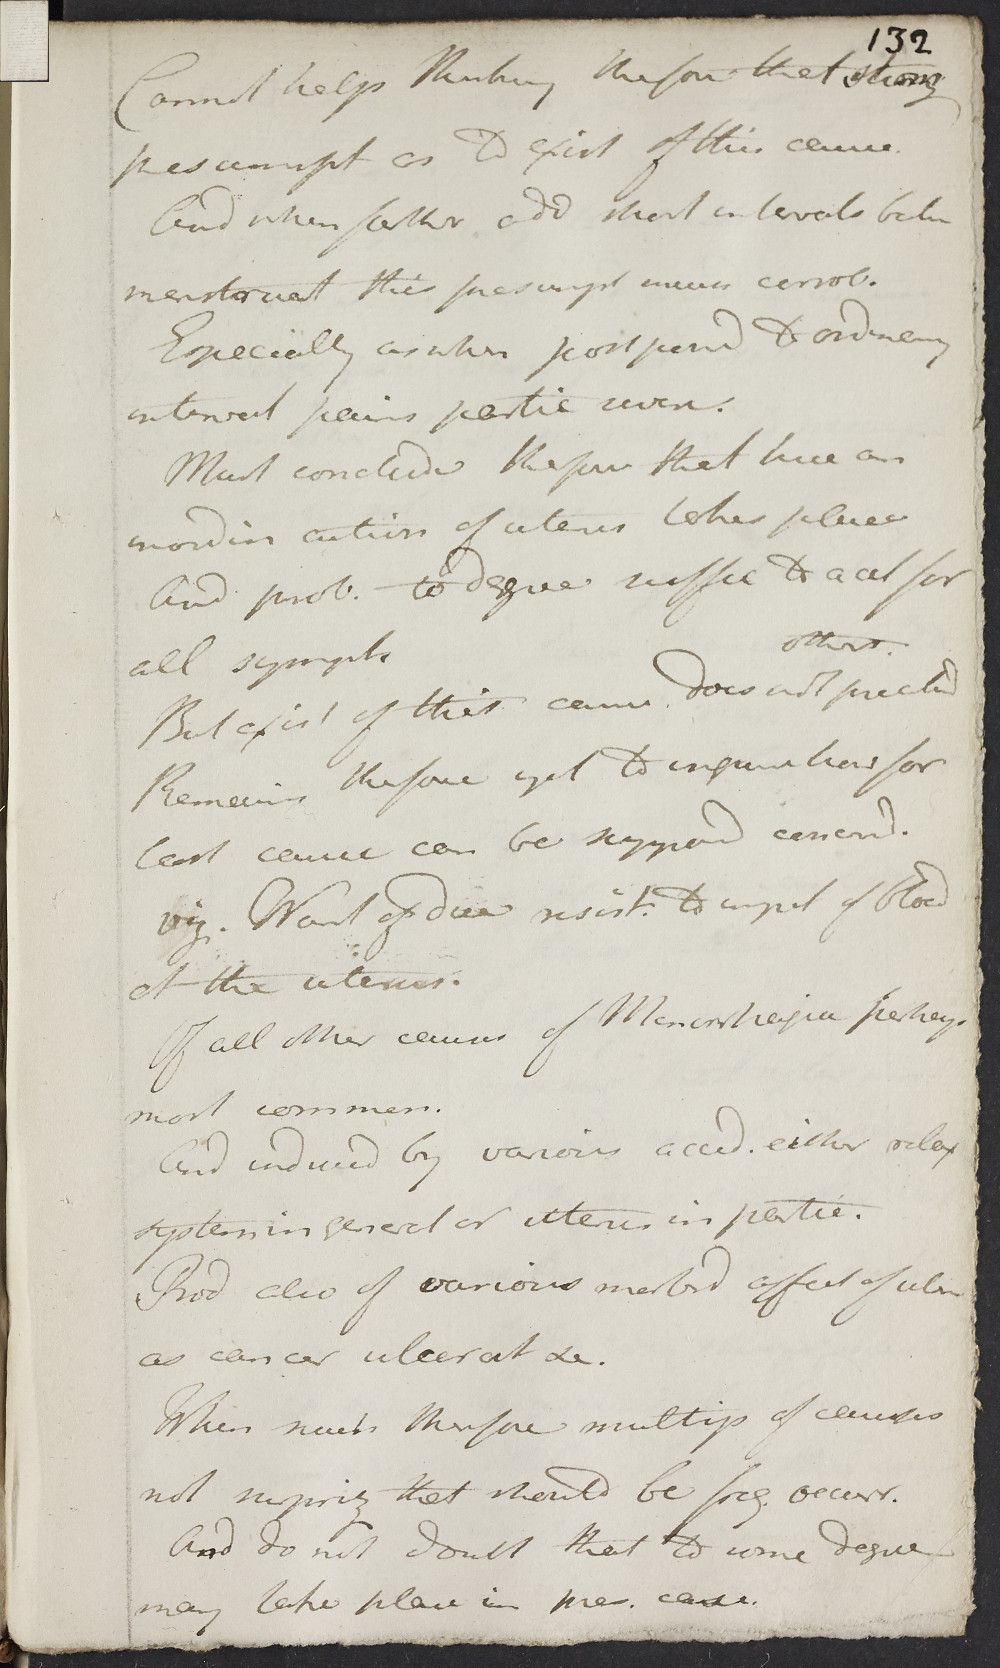 132
Cannot help thinking therfore that strong
presumpt as to exist of this cause.
And when farther add short intervals betw
menstruat this presumpt much corrob.
Especially as when postpond to ordinary
interval pains partic severe.
Must conclude therfore that here an
inordin action of uterus takes place
And prob. to degree suffic to acct for
all sympts
others.
But exist of this cause does not preclud
Remains therfore yet to inquire how far
last cause can be suppos'd concern'd.
viz. Want of due resist. to impet of blood
at the uterus.
Of all other causes of Menorrhagia perhaps
most common.
And induced by various accid. either relax
system in general or uterus in partic.
Prod also of various morbid affect of uter
as cancer ulcerat &c.
When such therefore multip of causes
not surpriz that should be freq. occurr.
And do not doubt that to some degree
may take place in pres. case.